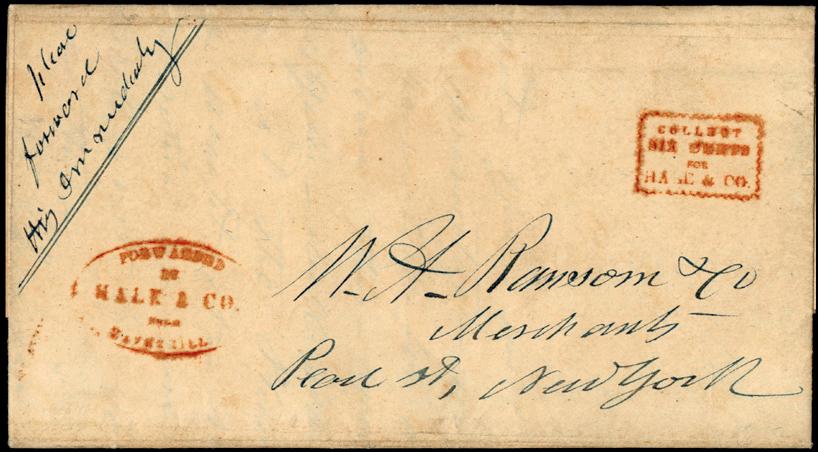 please
forward
this Immediately
COLLECT
SIX CENTS
FOR
HALE & CO.
FORWARDED
BY
HALE & CO.
FROM
HAVERHILL
W. H. Ransom & Co
Merchants
Pearl st, New York